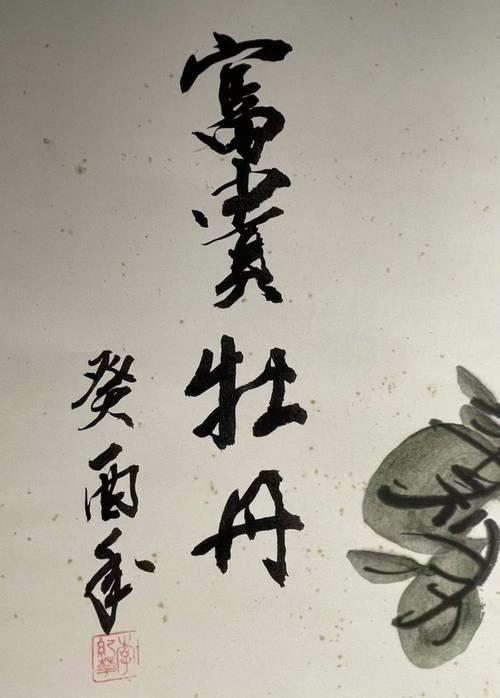 富貴牡丹
癸酉年